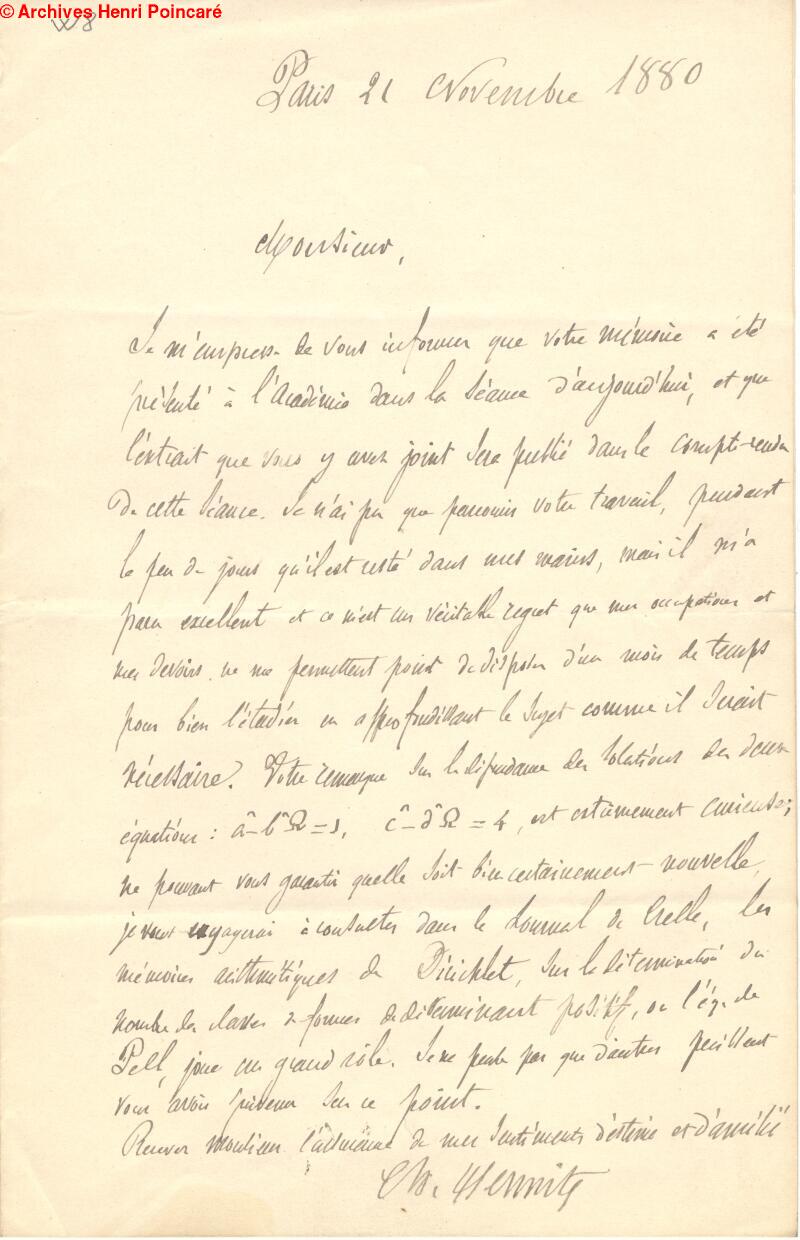 © Archives Henri Poincaré
Paris 21 Novembre 1880
Monsieur,
Je m'empresse de vous informer que votre mémoire a été
présenté à l'Académie dans la séance d'aujourd'hui, et que
l'extrait que vous y avez joint sera publié dans le compte-rendu
de cette séance. Je n'ai pu que parcourir votre travail, pendant
le peu de jours qu'il est resté dans mes mains, mais il m'a
paru excellent et ce m'est un véritable regret que mes occupations et
mes devoirs ne me permettent point de disposer d'un mois de temps
pour bien l'étudier en approfondissant le sujet comme il serait
nécessaire. Votre remarque sur la dépendance des solutions des deux
équations : a² - b²Ω = 1, c² - d²Ω = 4, est extrêmement curieuse;
ne pouvant vous garantir quelle soit bien certainement nouvelle,
je vous engagerai à consulter dans le Journal de Crelle, les
mémoires arithmétiques de Dirichlet, sur la détermination du
nombre des classes de formes de déterminant positif, où l'éq. de
Pell, joue un grand rôle. Je ne pense pas que d'autres puissent
vous avoir prévenu sur ce point.
Recevez monsieur l'assurance de mes sentiments d'estime et d'amitié
Ch. Hermite